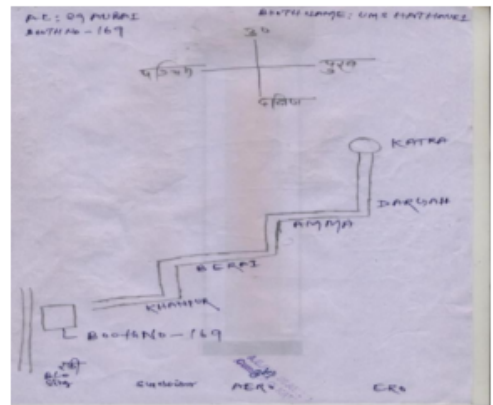 AC: 89 AURAI
BOOTH NO - 169
BOOTH NAME: UMS
पश्चिम
पुरब
दक्षिण
KATRA
DARGAH
AMMA
BERAI
KHANPUR
BOOTH NO - 169
AERO
ERO